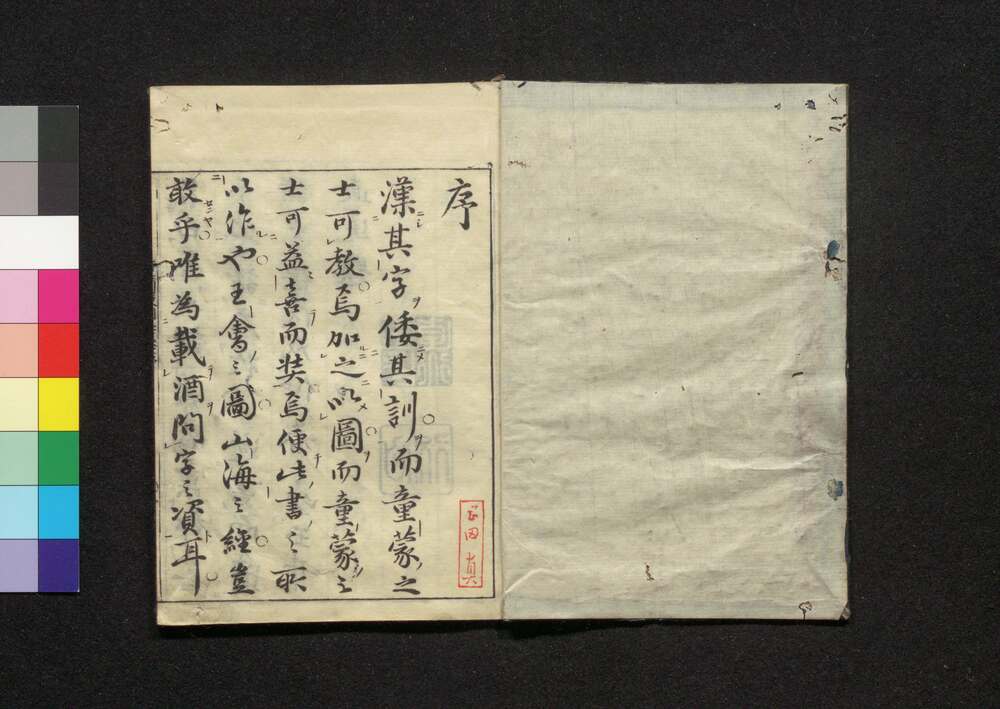 序
漢其字倭其訓而童蒙之
士可教焉加之以圖而童蒙之
士可益喜而奘焉便此書之所
以作や王會之圖山海之經豈
敢乎唯為載酒問字之資耳
田真